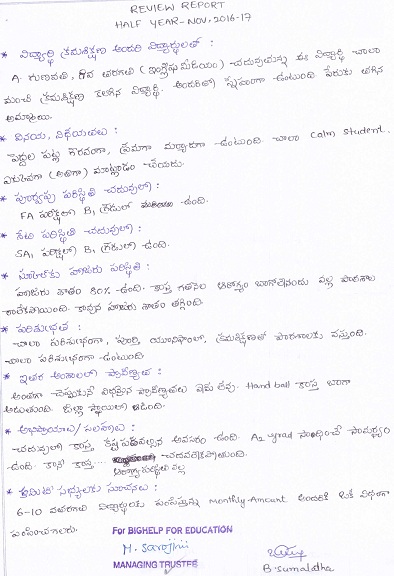 REVIEW REPORT
HALF YEAR - NOV, 2016-17
* విద్యార్థి క్రమశిక్షణ ఇందరి విద్యార్థులతో :
A. గుణవతి, తరగతి (ఇంగ్లీషు మీడియం) చదువుతున్న ఈ విద్యార్థి చాలా
మంచి క్రమశిక్షణ కలిగిన విద్యార్థి. అందరితో స్నేహంగా ఉంటుంది పేరుకు తగిన
అమ్మాయి.
* వినయ, విధేయతలు :
పెద్దల పట్ల గౌరవంగా, ప్రేమగా మర్యాదగా ఉంటుంది. చాలా Calm student.
(అతిగా) మాట్లాడం చేయదు.
* పూర్వపు పరిస్థితి చదువులో :
FA పరీక్షలో B1 గ్రేడులో ఉంది.
* నేటి పరిస్థితి చదువులో :
SA1 పరీక్షలో B1 గ్రేడులో ఉంది.
* హాజరు పరిస్థితి :
హాజరు శాతం 80% ఉంది. కాస్త ఆరోగ్యం బాగోలేనందు వల్ల పాఠశాల
కావున హాజరు శాతం తగ్గింది.
* పరిశుభ్రత :
చాలా పరిశుభ్రంగా, పూర్తి యూనిఫాంలో, క్రమశిక్షణతో పాఠశాలకు వస్తుంది.
చాలా పరిశుభ్రంగా ఉంటుంది.
* ఇతర అంశాలలో ప్రావీణ్యత :
అంతగా చెప్పుకునే విధమైన ప్రావీణ్యతలు ఏమి లేవు. Hand ball కాస్త బాగా
ఆడుతుంది. జిల్లా స్థాయిలో ఆడింది.
* అభిప్రాయాలు/సలహాలు :
చదువులో కాస్త కష్టపడవలసిన అవసరం ఉంది. A2 grad సాధించే సామర్థ్యం
ఉంది. కానీ కాస్త....
వల్ల
* కమిటీ సభ్యులకు సూచనలు :
6-10 తరగతుల విద్యార్థులకు పంపిస్తున్న Monthly Amount అందరికి ఒకే విధంగా
పంపించగలరు.
For BIGHELP FOR EDUCATION
M. Sarojini
MANAGING TRUSTEE
B. Sumalatha